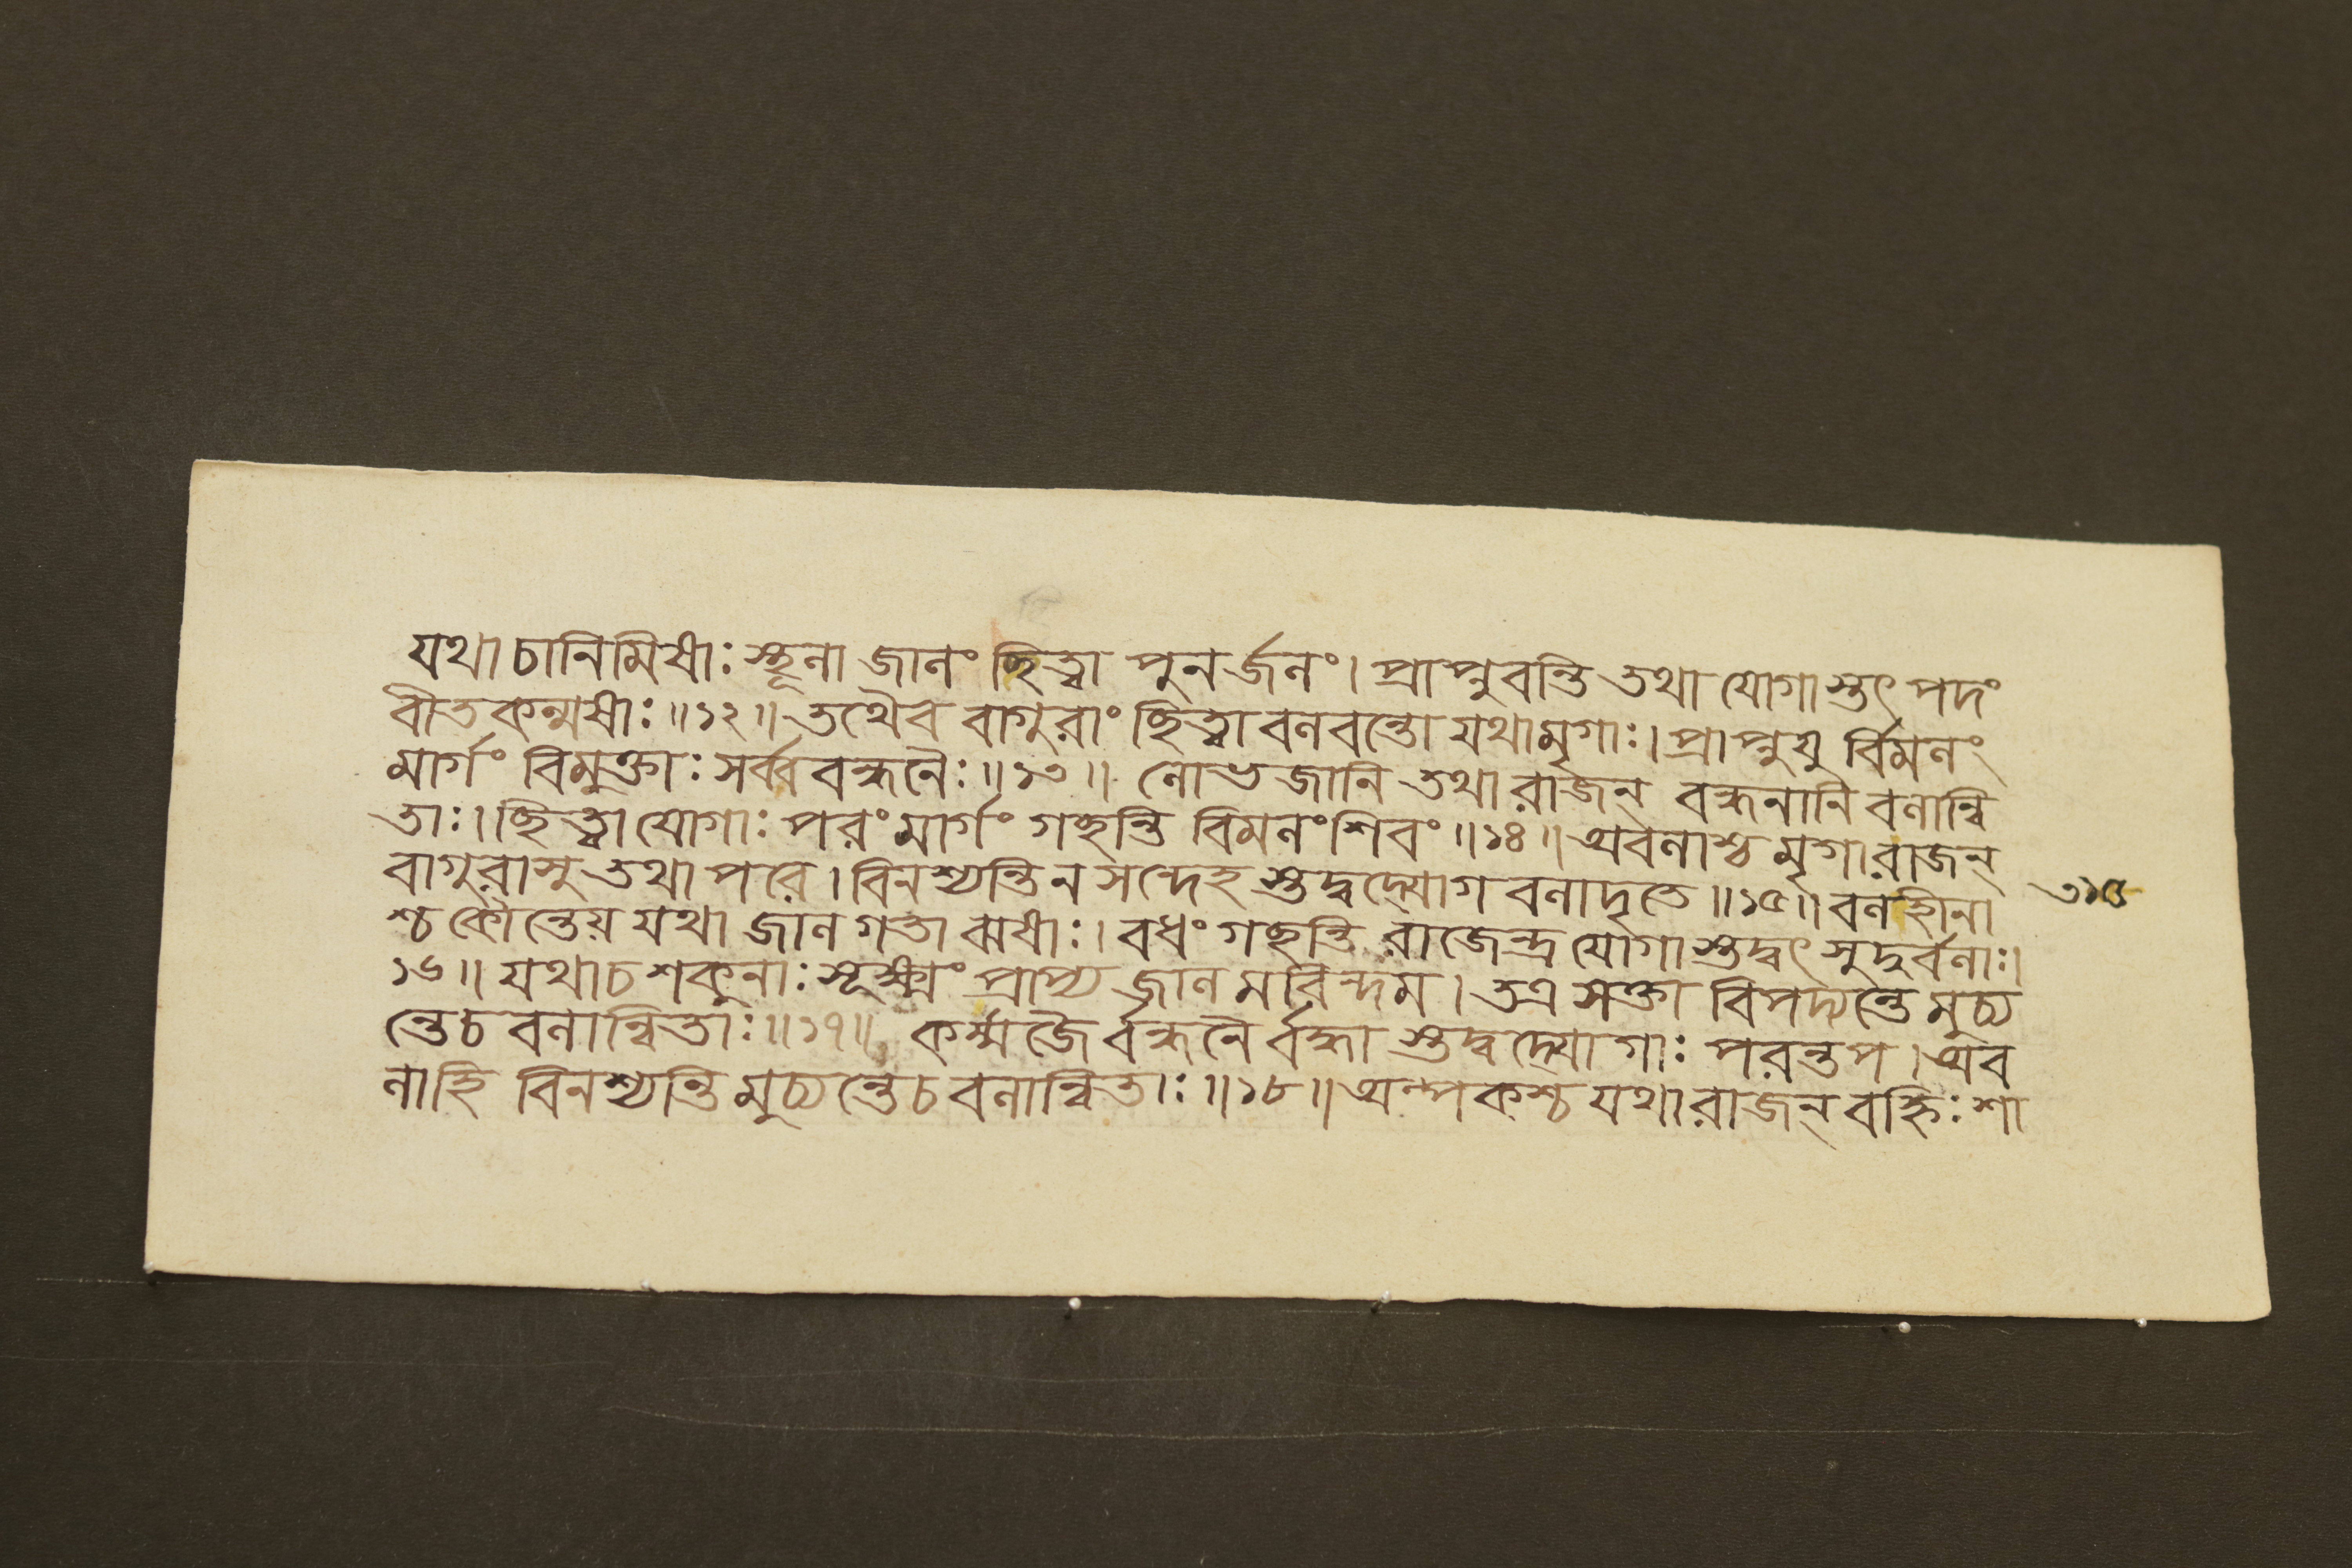 যথা চানিমিষাঃ স্থূলা জালং ছিত্ত্বা পুনর্জলং। প্রাপ্নুবন্তি তথা যোগাস্তৎ পদং
বীতকল্মষাঃ॥১২॥ তথৈব বাগুরাং ছিত্ত্বা বলবন্তো যথা মৃগাঃ। প্রাপ্নুযু র্বিমলং
মার্গং বিমুক্তাঃ সর্ব্ববন্ধনৈঃ॥১৩॥ লোভজানি তথা রাজন্ বন্ধনানি বলান্বি
তাঃ। ছিত্ত্বা যোগাঃ পরং মার্গং গচ্ছন্তি বিমলং শিবং॥১৪॥ অবলাশ্চ মৃগা রাজন্
বাগুরাসু তথাপরে। বিনশ্যন্তি ন সন্দেহ স্তদ্বদ্যোগ বলাদৃতে॥১৫॥ বলহীনা
৩১৫
শ্চ কৌন্তেয় যথা জালগতা ঝষাঃ। বধং গচ্ছন্তি রাজেন্দ্র যোগাস্তদ্বৎ সুদুর্বলাঃ।
১৬॥ যথা চ শকুনাঃ সূক্ষ্মং প্রাপ্য জালমরিন্দম। তত্র সক্তা বিপদ্যন্তে মুচ্য
ন্তে চ বলান্বিতাঃ॥১৭॥ কর্ম্মজৈ র্বন্ধনৈ র্বদ্ধা স্তদ্বদ্যোগাঃ পরন্তপ। অব
লা হি বিনশ্যন্তি মুচ্যন্তে চ বলান্বিতাঃ॥১৮॥ অল্পকশ্চ যথা রাজন্ বহ্নিঃ শা